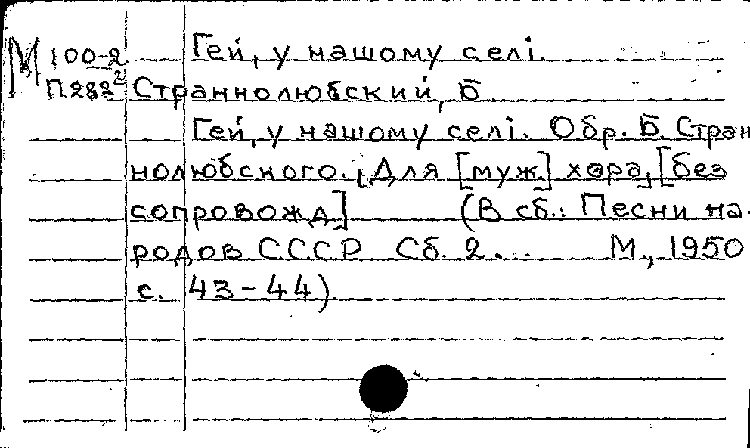 М 100-2 Гей, у нашому селі.
П282² Страннолюбский, Б
Гей, у нашому селі. Обр. Б. Стран
нолюбского. [Для [муж.] хора, [без
сопровожд] (В сб.: Песни на-
родов СССР Сб. 2... М., 1950
с. 43-44)